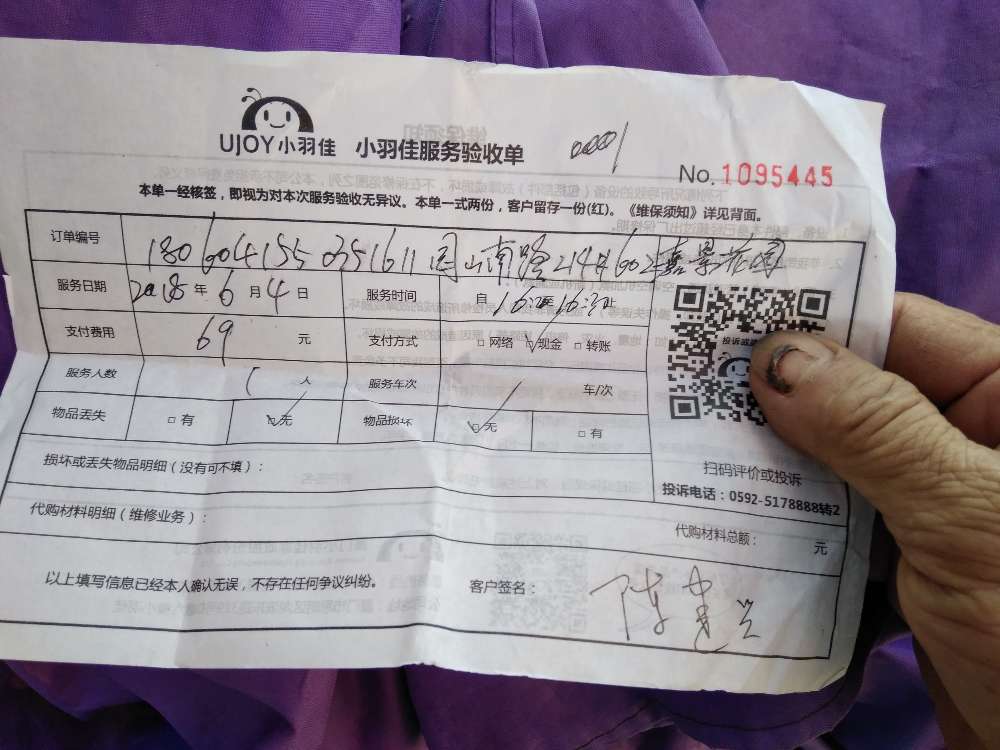 UJOY小羽佳 小羽佳服务验收单 00001
No. 1095445
本单一经核签，即视为对本次服务验收无异议。本单一式两份，客户留存一份(红)。《维保须知》详见背面。
订单编号 1806041550351611 南路214#602嘉景花园
服务日期 2018年6月4日 服务时间 自16:00至16:30止
支付费用 69 元 支付方式 □网络 ☑现金 □转账
服务人数 1 人 服务车次 车/次
物品丢失 □有 ☑无 物品损坏 ☑无 □有
投诉或
扫码评价或投诉
投诉电话：0592-5178888转2
损坏或丢失物品明细（没有可不填）：
代购材料明细（维修业务）： 代购材料总额： 元
以上填写信息已经本人确认无误，不存在任何争议纠纷。 客户签名： 陈